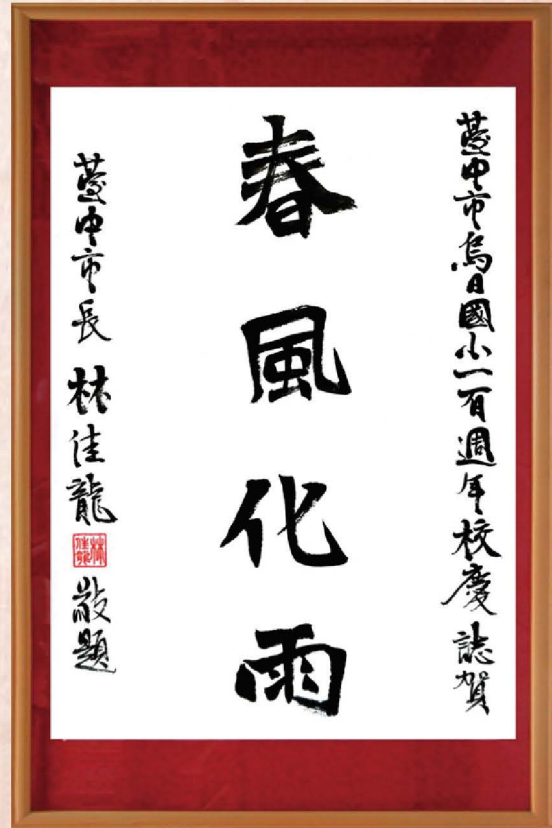 臺中市烏日國小一百週年校慶誌賀
春風化雨
臺中市長 林佳龍 敬題
林佳龍